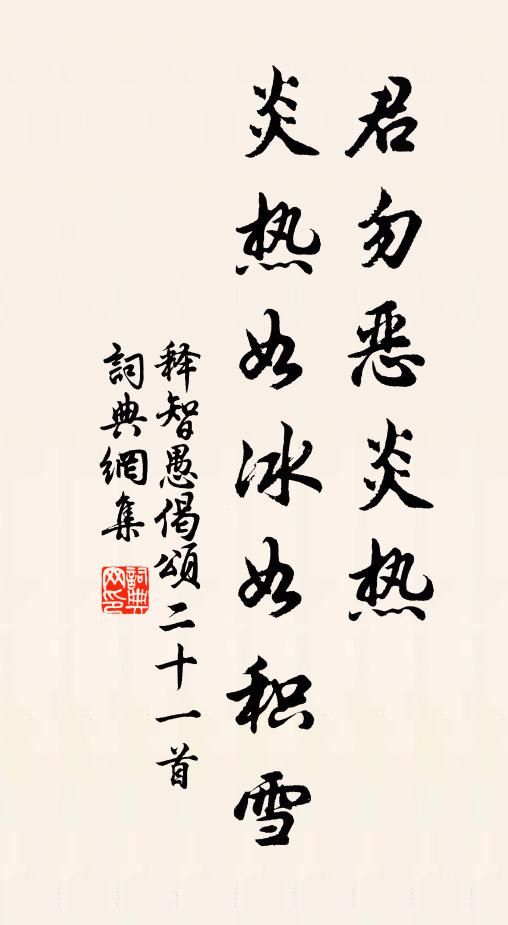 君勿恶炎热
炎热如冰如积雪
释智愚偈頌二十一首
詞典網集
詞典
网印